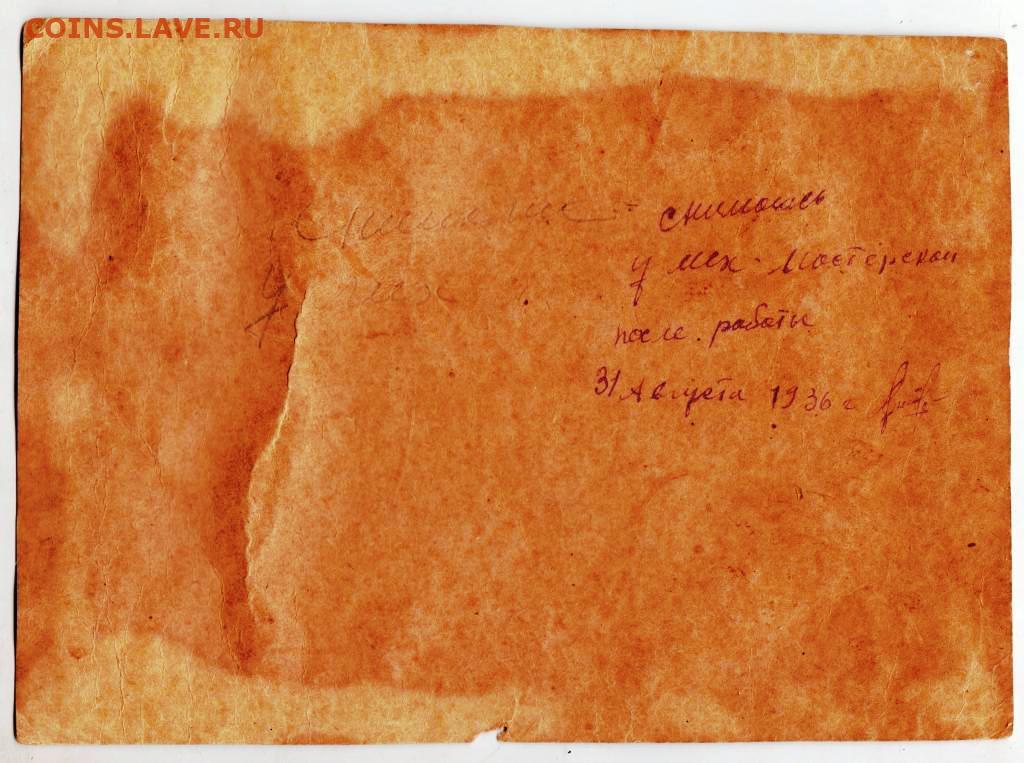 COINS.LAVE.RU
снимались
у мех. мастерской
после работы
31 Августа 1936 г
у мех